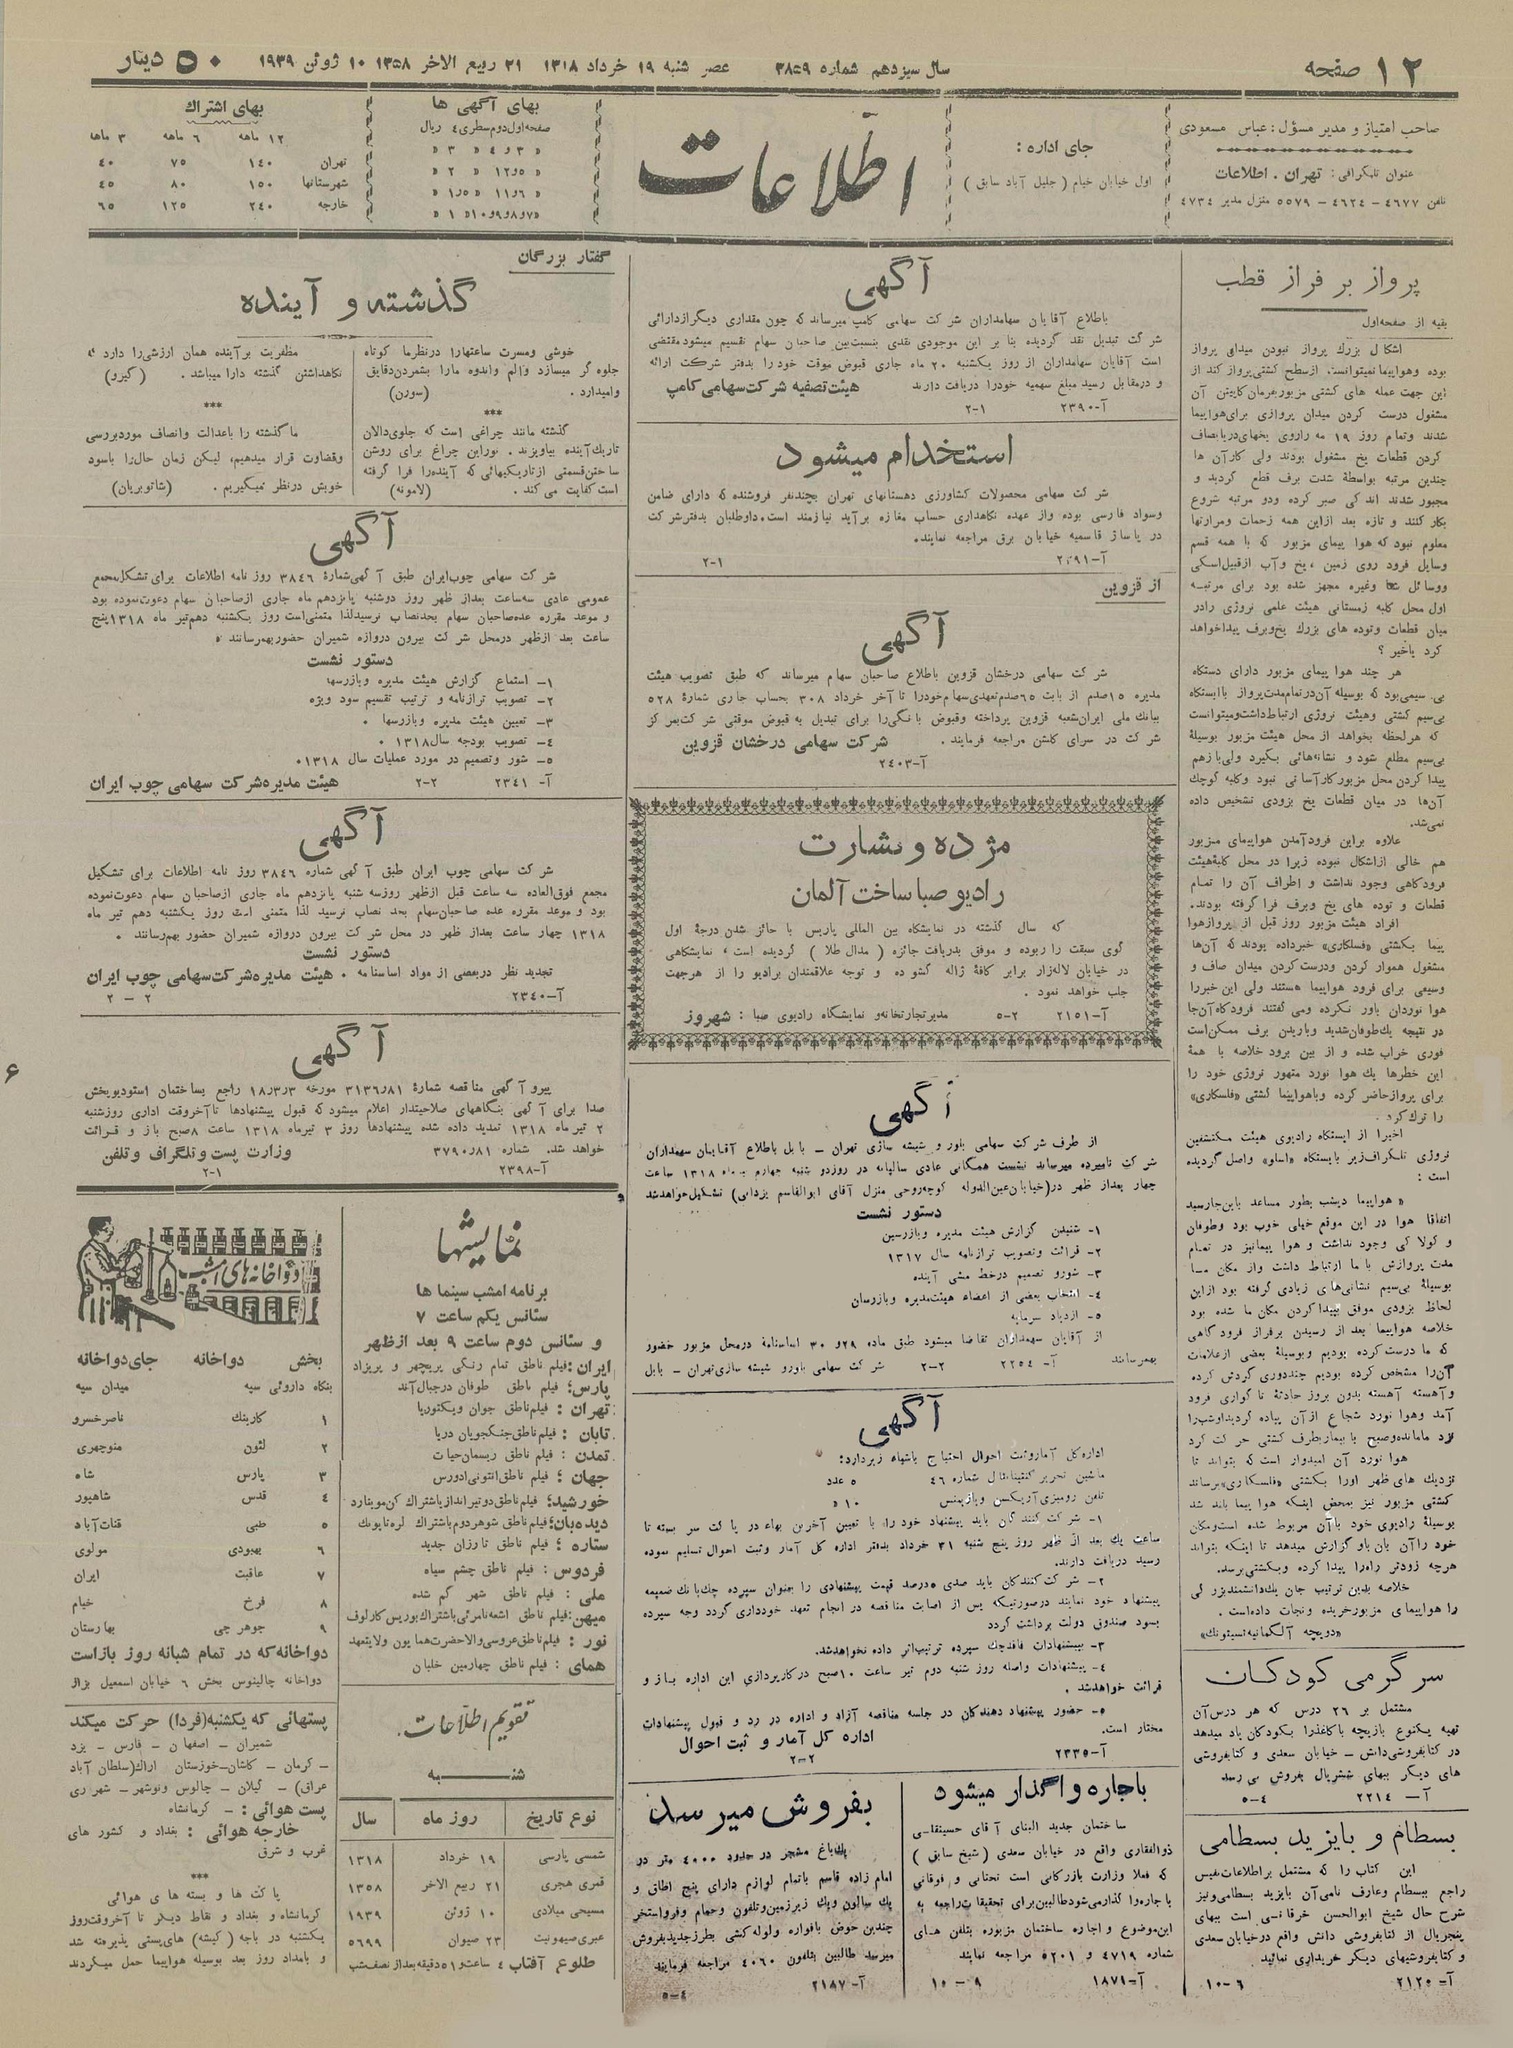 ۱۲ صفحه
سال سیزدهم شماره ۳۸۵۹
عصر شنبه ۱۹ خرداد ۱۳۱۸
۲۱ ربیع الاخر ۱۳۵۸
۱۰ ژوئن ۱۹۳۹
۵۰ دینار
صاحب امتیاز و مدیر مسؤل: عباس مسعودی
عنوان تلگرافی: تهران . اطلاعات
تلفن ۴۶۷۷ - ۴۶۲۴ - ۵۵۷۹ منزل مدیر ۴۷۳۴
جای اداره :
اول خیابان خیام ( جلیل آباد سابق )
اطلاعات
بهای آگهی ها
صفحه اول دوم سطری ٤ ریال
بهای اشتراك
۱۲ ماهه ۶ ماهه ۳ ماهه
تهران ۱۴۰ ۷۵ ۴۰
شهرستانها ۱۵۰ ۸۰ ۴۵
خارجه ۲۴۰ ۱۲۵ ۶۵
پرواز بر فراز قطب
بقیه از صفحه اول
اشکال بزرك پرواز نبودن میدانی پرواز
بوده وهواپیما نمیتوانست ازسطح کشتی پرواز کند از
این جهت عمله های کشتی مزبور بفرمان کاپیتن آن
مشغول درست کردن میدان پروازی برای هواپیما
شدند وتمام روز ۱۹ مه راروی یخهای دریا بصاف
کردن قطعات یخ مشغول بودند ولی کارآن ها
چندین مرتبه بواسطهٔ شدت برف قطع گردید و
مجبور شدند اندکی صبر کرده ودو مرتبه شروع
بکار کنند و تازه بعد ازاین همه زحمات ومرارتها
معلوم نبود که هوا پیمای مزبور که با همه قسم
وسایل فرود روی زمین ، یخ وآب ازقبیل اسکی
ووسائل شنا وغیره مجهز شده بود برای مرتبه
اول محل کلبه زمستانی هیئت علمی نروژی رادر
میان قطعات وتوده های بزرك یخ وبرف پیدا خواهد
کرد یاخیر ؟
هر چند هوا پیمای مزبور دارای دستگاه
بی سیمی بود که بوسیله آن درتمام مدت پرواز باایستگاه
بی سیم کشتی وهیئت نروژی ارتباط داشت ومیتوانست
که هر لحظه بخواهد از محل هیئت مزبور بوسیلهٔ
بی سیم مطلع شود و نشانه هائی بگیرد ولی بازهم
پیدا کردن محل مزبور کار آسانی نبود وکلبه کوچك
آن ها در میان قطعات یخ بزودی تشخیص داده
نمی شد.
علاوه براین فرود آمدن هواپیمای مزبور
هم خالی ازاشکال نبوده زیرا در محل کلبهٔ هیئت
فرودگاهی وجود نداشت و اطراف آن را تمام
قطعات و توده های یخ وبرف فرا گرفته بودند.
افراد هیئت مزبور روز قبل از پرواز هوا
پیما بکشتی «فسلکاری» خبرداده بودند که آن ها
مشغول هموار کردن ودرست کردن میدان صاف و
وسیعی برای فرود هواپیما هستند ولی این خبررا
هوا نوردان باور نکرده ومی گفتند فرودگاه آن جا
در نتیجه یك طوفان شدید وباریدن برف ممکن است
فوری خراب شده و از بین برود خلاصه با همهٔ
این خطرها یك هوا نورد متهور نروژی خود را
برای پرواز حاضر کرده وباهواپیما کشتی «فلسکاری»
را ترك کرد.
اخیرا از ایستگاه رادیوی هیئت مکتشفین
نروژی تلگراف زیر بایستگاه «اسلو» واصل گردیده
است :
« هواپیما دیشب بطور مساعد باین جا رسید
اتفاقا هوا در این موقع خیلی خوب بود وطوفان
و کولاکی وجود نداشت و هوا پیما نیز در تمام
مدت پروازش با ما ارتباط داشت واز مکان ما
بوسیلهٔ بی سیم نشانی های زیادی گرفته بود ازاین
لحاظ بزودی موفق بپیدا کردن مکان ما شده بود
خلاصه هواپیما بعد از رسیدن برفراز فرودگاهی
که ما درست کرده بودیم وبوسیلهٔ بعضی ازعلامات
آن را مشخص کرده بودیم چند دوری گردش کرده
وآهسته آهسته بدون بروز حادثهٔ ناگواری فرود
آمد وهوا نورد شجاع از آن پیاده گردید اوشب را
نزد ما مانده وصبح با بیمار بطرف کشتی حرکت کرد
هوا نورد آن امیدوار است که بتواند تا
نزدیك های ظهر اورا بکشتی «فلسکاری» برساند
کشتی مزبور نیز بمحض اینکه هوا پیما بلند شد
بوسیلهٔ رادیوی خود باآن مربوط شده است ومکان
خود راآن بآن باو گزارش میدهد تا اینکه بتواند
هرچه زودتر راه را پیدا کرده وبکشتی برسد.
خلاصه بدین ترتیب جان یك دانشمند بزرگی
را هواپیمای مزبور خریده ونجات داده است .
«دویچه آلگماینه تسیتونك»
سر گرمی کودکان
مشتمل بر ۲۶ درس که هر درس آن
تهیه یکنوع بازیچه باکاغذرا بکودکان یاد میدهد
در کتابفروشی دانش - خیابان سعدی و کتابفروشی
های دیگر ببهای شش ریال بفروش می رسد
آ- ۲۲۱۴ ۴-۵
بسطام و بایزید بسطامی
این کتاب را که مشتمل بر اطلاعات نفیس
راجع ببسطام وعارف نامی آن بایزید بسطامی ونیز
شرح حال شیخ ابوالحسن خرقانی است ببهای
پنجریال از کتابفروشی دانش واقع در خیابان سعدی
و کتابفروشیهای دیگر خریداری نمائید
آ- ۲۱۲۰ ۶-۱۰
آگهی
باطلاع آقایان سهامداران شرکت سهامی کامپ میرساند که چون مقداری دیگر ازدارائی
شرکت تبدیل نقد گردیده بنا بر این موجودی نقدی بنسبت بین صاحبان سهام تقسیم میشود مقتضی
است آقایان سهامداران از روز یکشنبه ۲۰ ماه جاری قبوض موقت خود را بدفتر شرکت ارائه
و درمقابل رسید مبلغ سهمیه خودرا دریافت دارند هیئت تصفیه شرکت سهامی کامپ
آ-۲۳۹۰ ۲-۱
استخدام میشود
شرکت سهامی محصولات کشاورزی دهستانهای تهران بچند نفر فروشنده که دارای ضامن
وسواد فارسی بوده واز عهده نگاهداری حساب مغازه برآید نیازمند است . داوطلبان بدفتر شرکت
در پاساژ قاسمیه خیابان برق مراجعه نمایند.
آ-۲۳۹۱ ۲-۱
از قزوین
آگهی
شرکت سهامی درخشان قزوین باطلاع صاحبان سهام میرساند که طبق تصویب هیئت
مدیره ۱۵ صدم از بابت ۶۵ صدم تعهدی سهام خودرا تا آخر خرداد ۳۰۸ بحساب جاری شمارهٔ ۵۲۸
ببانك ملی ایران شعبه قزوین پرداخته وقبوض بانگی را برای تبدیل به قبوض موقتی شرکت بمرکز
شرکت در سرای گلشن مراجعه فرمایند. شرکت سهامی درخشان قزوین
آ-۲۴۰۳
مژده و بشارت
رادیو صبا ساخت آلمان
که سال گذشته در نمایشگاه بین المللی پاریس با حائز شدن درجهٔ اول
گوی سبقت را ربوده و موفق بدریافت جائزه ( مدال طلا ) گردیده است ، نمایشگاهی
در خیابان لاله زار برابر کافهٔ ژاله گشوده و توجه علاقمندان برادیو را از هرجهت
جلب خواهد نمود .
آ-۲۱۵۱ ۲-۵ مدیر تجارتخانه و نمایشگاه رادیوی صبا : شهروز
آگهی
از طرف شرکت سهامی بلور و شیشه سازی تهران - بابل باطلاع آقایان سهمداران
شرکت نامبرده میرساند نشست همگانی عادی سالیانه در روز دو شنبه چهارم تیر ماه ۱۳۱۸ ساعت
چهار بعداز ظهر در(خیابان عین الدوله کوچه روحی منزل آقای ابوالقاسم یزدانی) تشکیل خواهد شد
دستور نشست
۱- شنیدن گزارش هیئت مدیره وبازرسین
۲- قرائت وتصویب ترازنامه سال ۱۳۱۷
۳- شورو تصمیم درخط مشی آینده
٤- انتخاب بعضی از اعضاء هیئت مدیره وبازرسان
۵- ازدیاد سرمایه
از آقایان سهمداران تقاضا میشود طبق ماده ۲۹ و ۳۰ اساسنامهٔ درمحل مزبور حضور
بهمرسانند آ- ۲۲۵۴ ۲-۲ شرکت سهامی بلورو شیشه سازی تهران - بابل
آگهی
اداره کل آمار وثبت احوال احتیاج باشیاء زیر دارد:
ماشین تحریر کنتینانتال شماره ۴۶ ۵ عدد
تلفن رومیزی آریکسن وبازیمنس ۱۰ »
۱- شرکت کنندگان باید پیشنهاد خود را با تعیین آخرین بهاء در پاکت سر بسته تا
ساعت یك بعد از ظهر روز پنج شنبه ۳۱ خرداد بدفتر اداره کل آمار وثبت احوال تسلیم نموده
رسید دریافت دارند.
۲- شرکت کنندگان باید صدی ۵ درصد قیمت پیشنهادی را بعنوان سپرده چك بانك ضمیمه
پیشنهاد خود نمایند درصورتیکه پس از اصابت مناقصه در انجام تعهد خودداری گردد وجه سپرده
بسود صندوق دولت برداشت گردد
۳- بپیشنهادات فاقد چك سپرده ترتیب اثر داده نخواهد شد.
٤- پیشنهادات واصله روز شنبه دوم تیر ساعت ۱۰ صبح در کارپردازی این اداره باز و
قرائت خواهد شد .
۵- حضور پیشنهاد دهندگان در جلسه مناقصه آزاد و اداره در رد و قبول پیشنهادات
مختار است. اداره کل آمار و ثبت احوال
آ-۲۳۳۵ ۲-۲
باجاره واگذار میشود
ساختمان جدید البنای آقای حسینقلی
ذوالفقاری واقع در خیابان سعدی ( شیخ سابق )
که فعلا وزارت بازرگانی است تحتانی و فوقانی
باجاره واگذار می شود طالبین برای تحقیقات راجع به
این موضوع و اجاره ساختمان مزبوره بتلفن های
شماره ۴۷۱۹ و ۵۲۰۱ مراجعه نمایند
آ-۱۸۷۱ ۹-۱۰
بفروش میرسد
یك باغ مشجر در حدود ۴۰۰۰ متر در
امام زاده قاسم باتمام لوازم دارای پنج اطاق و
یك سالون ویك زیرزمین وتلفون وحمام و فر واستخر
چندین حوض بافواره ولوله کشی بطرز جدید بفروش
میرسد طالبین بتلفون ۴۰۶۰ مراجعه فرمایند
آ- ۲۱۸۷
۴-۵
گفتار بزرگان
گذشته و آینده
خوشی ومسرت ساعتهارا درنظر ما کوتاه
جلوه گر میسازد والم واندوه مارا بشمردن دقایق
وامیدارد . (سورن)
***
گذشته مانند چراغی است که جلوی دالان
تاریك آینده بیاویزند . نوراین چراغ برای روشن
ساختن قسمتی ازتاریکیهائی که آینده را فرا گرفته
است کفایت می کند . (لامونه)
مظفریت بر آینده همان ارزشی را دارد که
نگاهداشتن گذشته دارا میباشد . (گیرو)
***
ما گذشته را باعدالت وانصاف موردبررسی
وقضاوت قرار میدهیم، لیکن زمان حال را باسود
خویش درنظر نمیگیریم . (شاتوبریان)
آگهی
شرکت سهامی چوب ایران طبق آگهی شمارهٔ ۳۸۴۶ روز نامه اطلاعات برای تشکیل مجمع
عمومی عادی سه ساعت بعداز ظهر روز دوشنبه پانزدهم ماه جاری ازصاحبان سهام دعوت نموده بود
و موعد مقرره عده صاحبان سهام بحد نصاب نرسید لذا متمنی است روز یکشنبه دهم تیر ماه ۱۳۱۸ پنج
ساعت بعد ازظهر درمحل شرکت بیرون دروازه شمیران حضور بهمرسانند .
دستور نشست
۱- استماع گزارش هیئت مدیره وبازرسها
۲- تصویب ترازنامه و ترتیب تقسیم سود ویژه
۳- تعیین هیئت مدیره وبازرسها .
٤- تصویب بودجه سال ۱۳۱۸ .
۵- شور وتصمیم در مورد عملیات سال ۱۳۱۸.
آ- ۲۳۴۱ ۲-۲ هیئت مدیره شرکت سهامی چوب ایران
آگهی
شرکت سهامی چوب ایران طبق آگهی شماره ۳۸۴۶ روز نامه اطلاعات برای تشکیل
مجمع فوق العاده سه ساعت قبل ازظهر روز سه شنبه پانزدهم ماه جاری ازصاحبان سهام دعوت نموده
بود و موعد مقرره عده صاحبان سهام بحد نصاب نرسید لذا متمنی است روز یکشنبه دهم تیر ماه
۱۳۱۸ چهار ساعت بعداز ظهر در محل شرکت بیرون دروازه شمیران حضور بهمرسانند .
دستور نشست
تجدید نظر در بعضی از مواد اساسنامه . هیئت مدیره شرکت سهامی چوب ایران
آ-۲۳۴۰ ۲ - ۲
آگهی
پیرو آگهی مناقصه شمارهٔ ۳۱۳۶٫۸۱ مورخه ۱۸٫۳٫۳ راجع بساختمان استودیو بخش
صدا برای آگهی بنگاههای صلاحیتدار اعلام میشود که قبول پیشنهادها تاآخر وقت اداری روز شنبه
۲ تیر ماه ۱۳۱۸ تمدید داده شده پیشنهادها روز ۳ تیر ماه ۱۳۱۸ ساعت ۸ صبح باز و قرائت
خواهد شد. شماره ۳۷۹۰٫۸۱ وزارت پست و تلگراف و تلفن
آ-۲۳۹۸ ۲-۱
۶
نمایشها
برنامه امشب سینما ها
سئانس یکم ساعت ۷
و سئانس دوم ساعت ۹ بعد ازظهر
ایران : فیلم ناطق تمام رنگی پریچهر و پریزاد
پارس : فیلم ناطق طوفان درجبال آند
تهران : فیلم ناطق جوان ویکتوریا
تابان : فیلم ناطق جنگجویان دریا
تمدن : فیلم ناطق ریسمان حیات
جهان : فیلم ناطق انتونی ادورس
خورشید : فیلم ناطق دوتیرانداز باشتراك کن مینارد
دیده بان : فیلم ناطق شوهر دوم باشتراك لرتا یونك
ستاره : فیلم ناطق تارزان جدید
فردوس : فیلم ناطق چشم سیاه
ملی : فیلم ناطق شهر گم شده
میهن : فیلم ناطق اشعه نامرئی باشتراك بوریس کارلوف
نور : فیلم ناطق عروسی والاحضرت همایون ولایتعهد
همای : فیلم ناطق چهارمین خلبان
تقویم اطلاعات
شنبه
نوع تاریخ روز ماه سال
شمسی پارسی ۱۹ خرداد ۱۳۱۸
قمری هجری ۲۱ ربیع الاخر ۱۳۵۸
مسیحی میلادی ۱۰ ژوئن ۱۹۳۹
عبری صیهونیت ۲۳ صیوان ۵۶۹۹
طلوع آفتاب ٤ ساعت و ۵۱ دقیقه بعداز نصف شب
دواخانه های امشب
بخش دواخانه جای دواخانه
بنگاه داروئی سپه میدان سپه
۱ کاربنك ناصر خسرو
۲ لئون منوچهری
۳ پارس شاه
٤ قدس شاهپور
۵ طبی قنات آباد
۶ بهبودی مولوی
۷ عاقبت ایران
۸ فرخ خیام
۹ جوهرچی بهارستان
دواخانه که در تمام شبانه روز باز است
دواخانه جالینوس بخش ۶ خیابان اسمعیل بزاز
پستهائی که یکشنبه(فردا) حرکت میکند
شمیران - اصفهان - فارس - یزد
- کرمان - کاشان - خوزستان اراك(سلطان آباد
عراق) - گیلان - چالوس ونوشهر - شهر ری
پست هوائی : - کرمانشاه
خارجه هوائی : بغداد و کشور های
غرب و شرق
***
پاکت ها و بسته های هوائی
کرمانشاه و بغداد و نقاط دیگر تا آخر وقت روز
یکشنبه در باجه (گیشه) های پستی پذیرفته شد
و بامداد روز بعد بوسیله هواپیما حمل میگردند